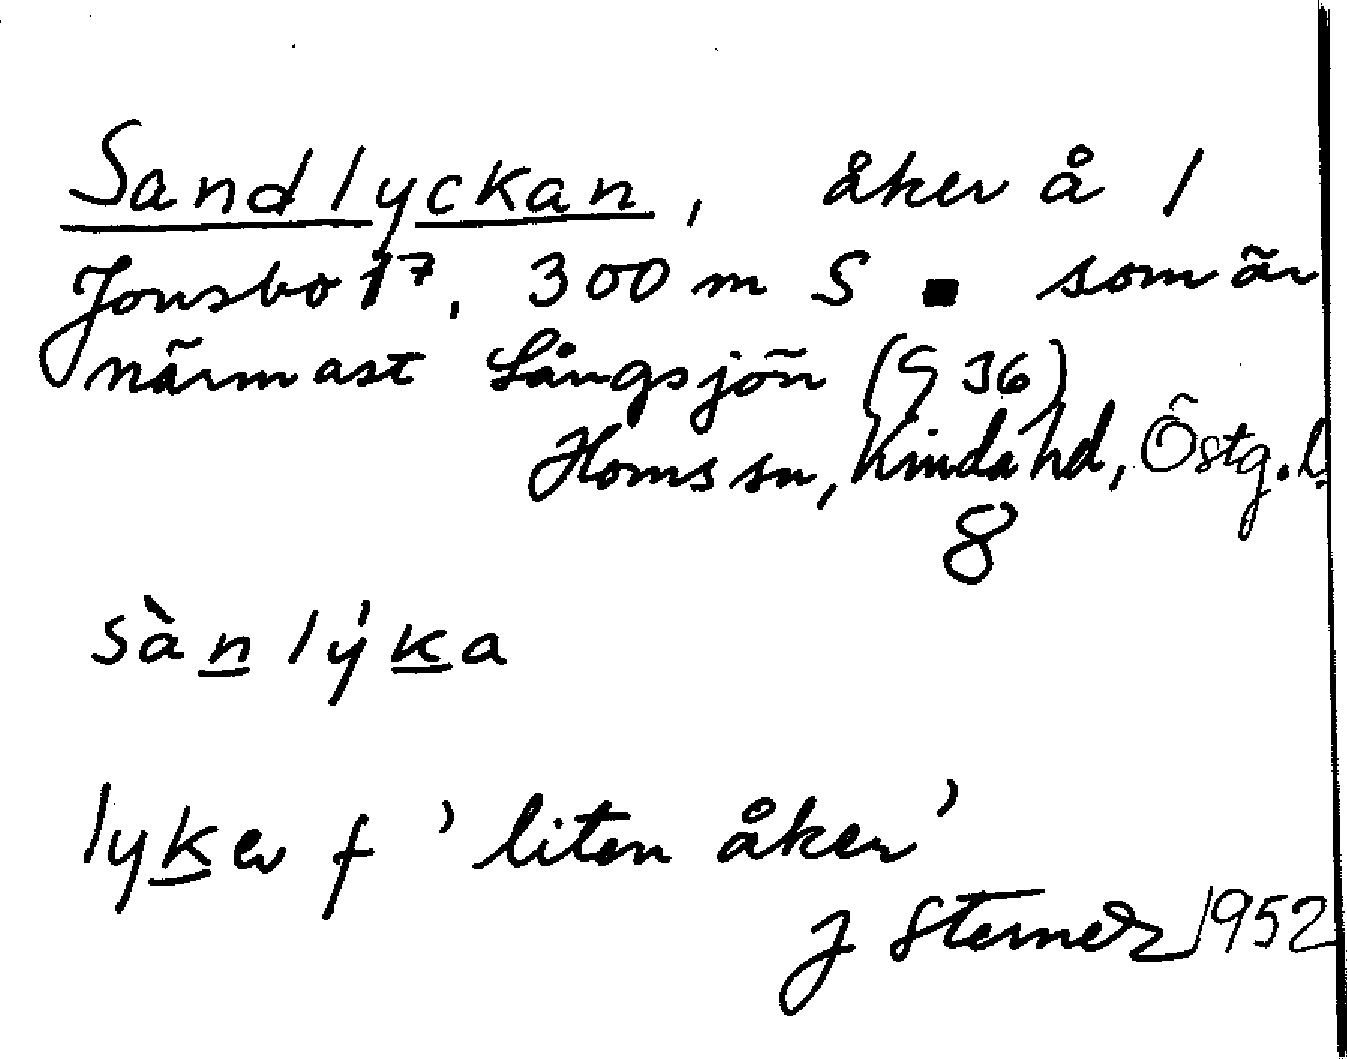 Sandlyckan, åker å 1
Jonsbo 1⁷, 300 m S ▪ som är
närmast Långsjön (S 36)
Homs sn, Kinda hd, Östg. l.
8
sànlýka
lyker f 'liten åker'
J Sterner 1952